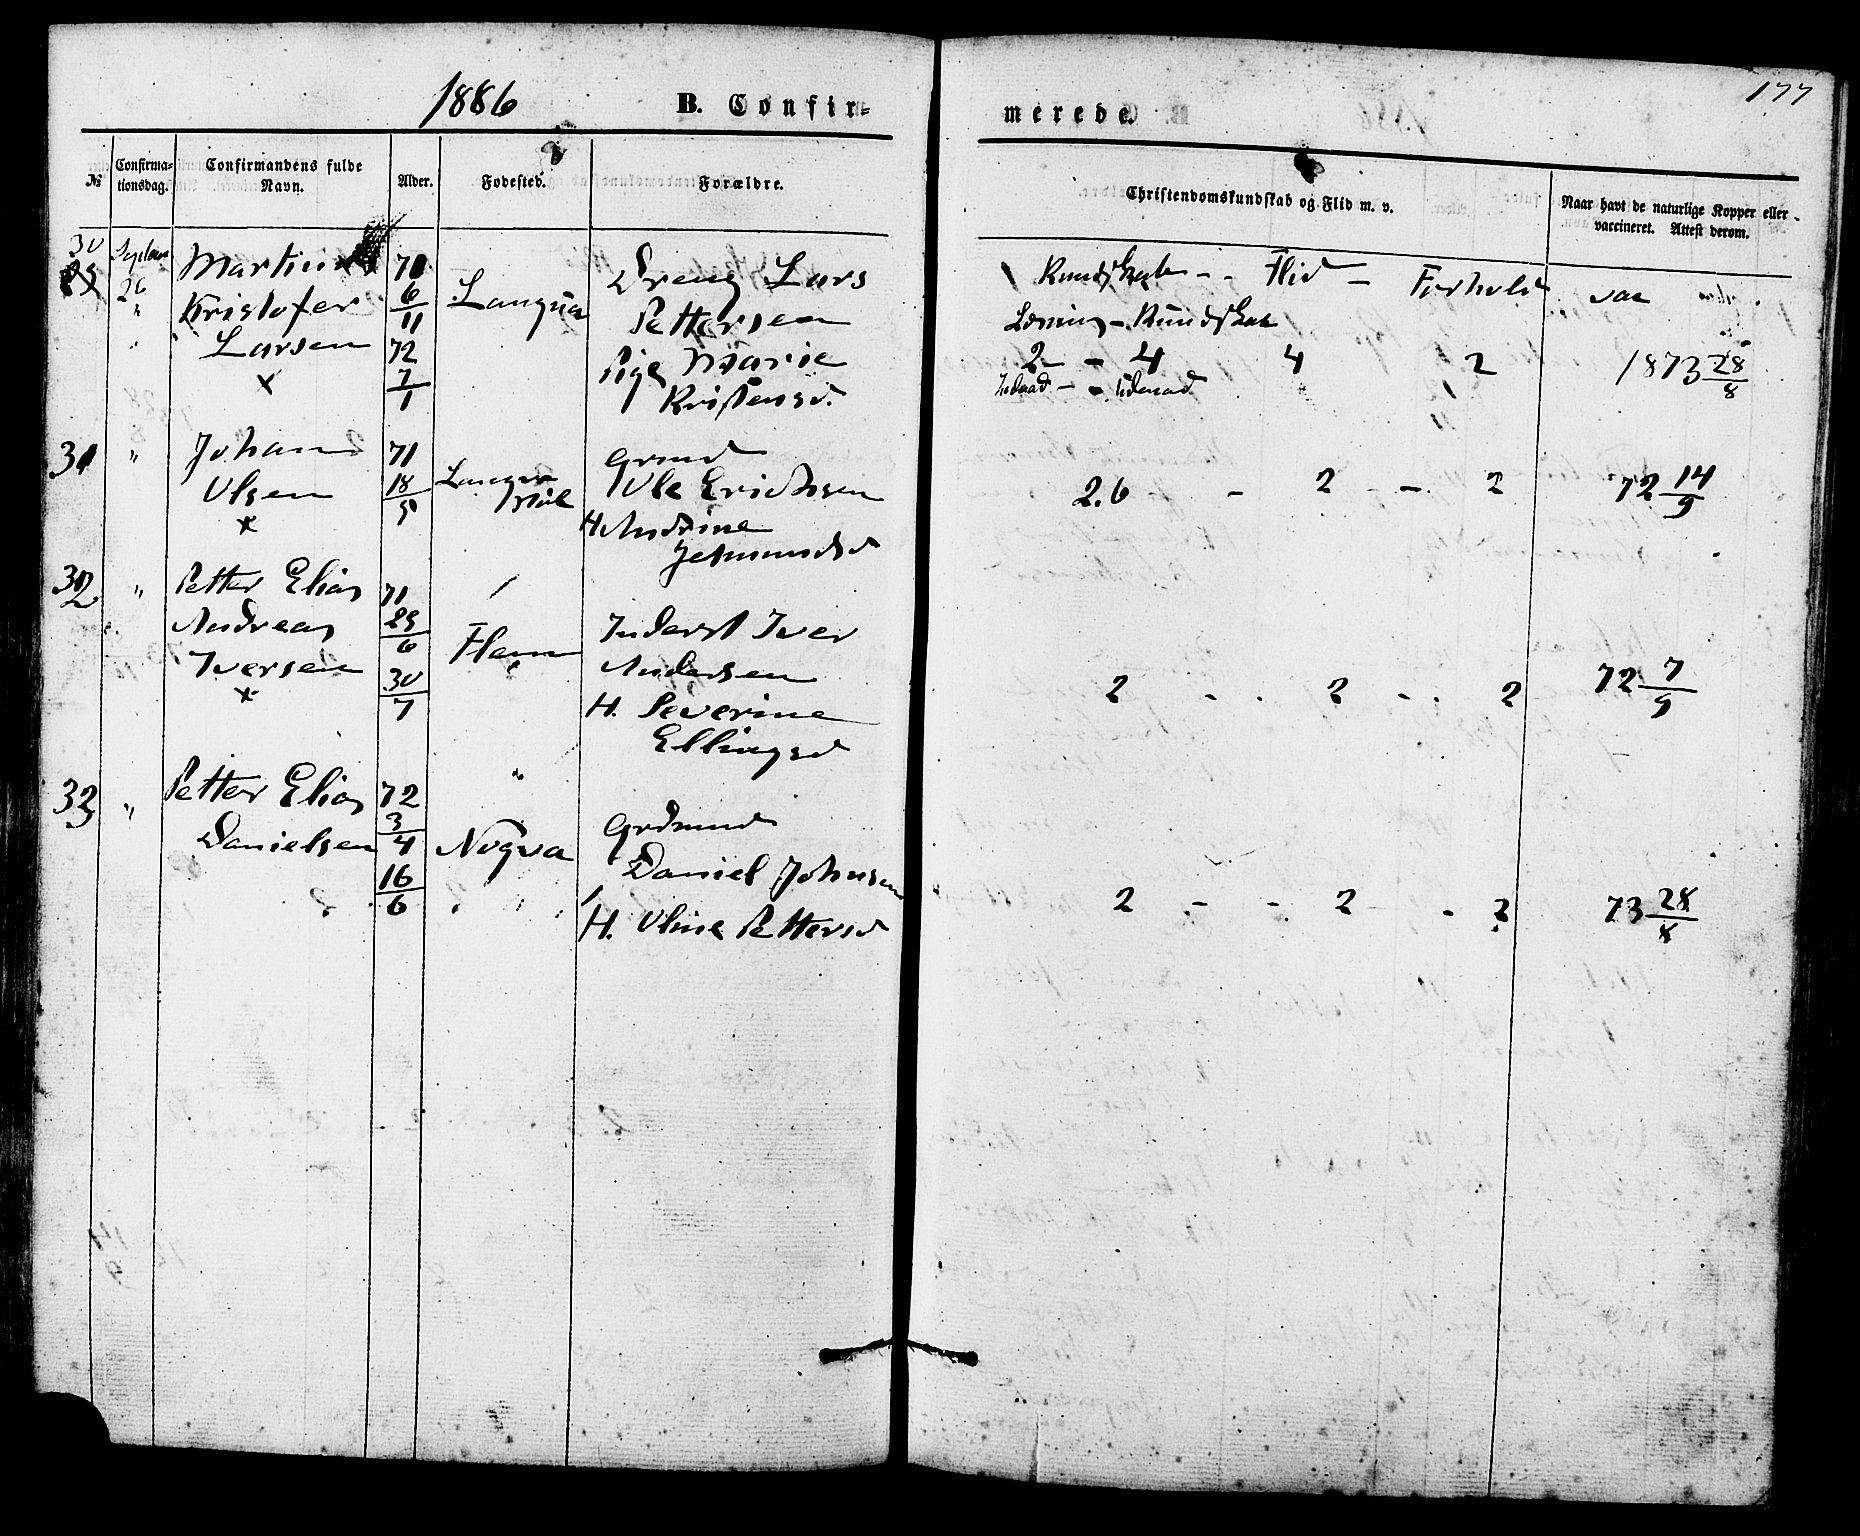 1886
B. Confir-
merede.
177
№
Confirma-
tionsdag.
Confirmandens fulde
Navn.
Alder.
Fødested.
Forældre.
Christendomskundskab og Flid m. v.
Naar havt de naturlige Kopper eller
vaccineret. Attest derom.
30
26
Kristofer
Larsen
x
71
6/11
72
7/1
Dreng Lars
Pettersen
Pige Marie
Kristensd.
Kundskab - - Flid - Forhold
Kundskab
2 - 4 4 2
vac
1873 28/8
31
"
Johan
Olsen
x
71
18/9
Grmd
Ole Erichsen
H. Andrine
72 14/9
2.6 - 2 - 2
32
"
Petter Elias
Andreas
Iversen
x
71
29/6
30/7
Inderst Iver
Andersen
H. Severine
Ellingsd
2 - 2 - 2
72 7/9
33
"
Petter Elias
Danielsen
72
3/4
16/6
Nogva
Grdmnd
Daniel Johnsen
H. Oline Pettersd
2 - - 2 - 2
73 28/8